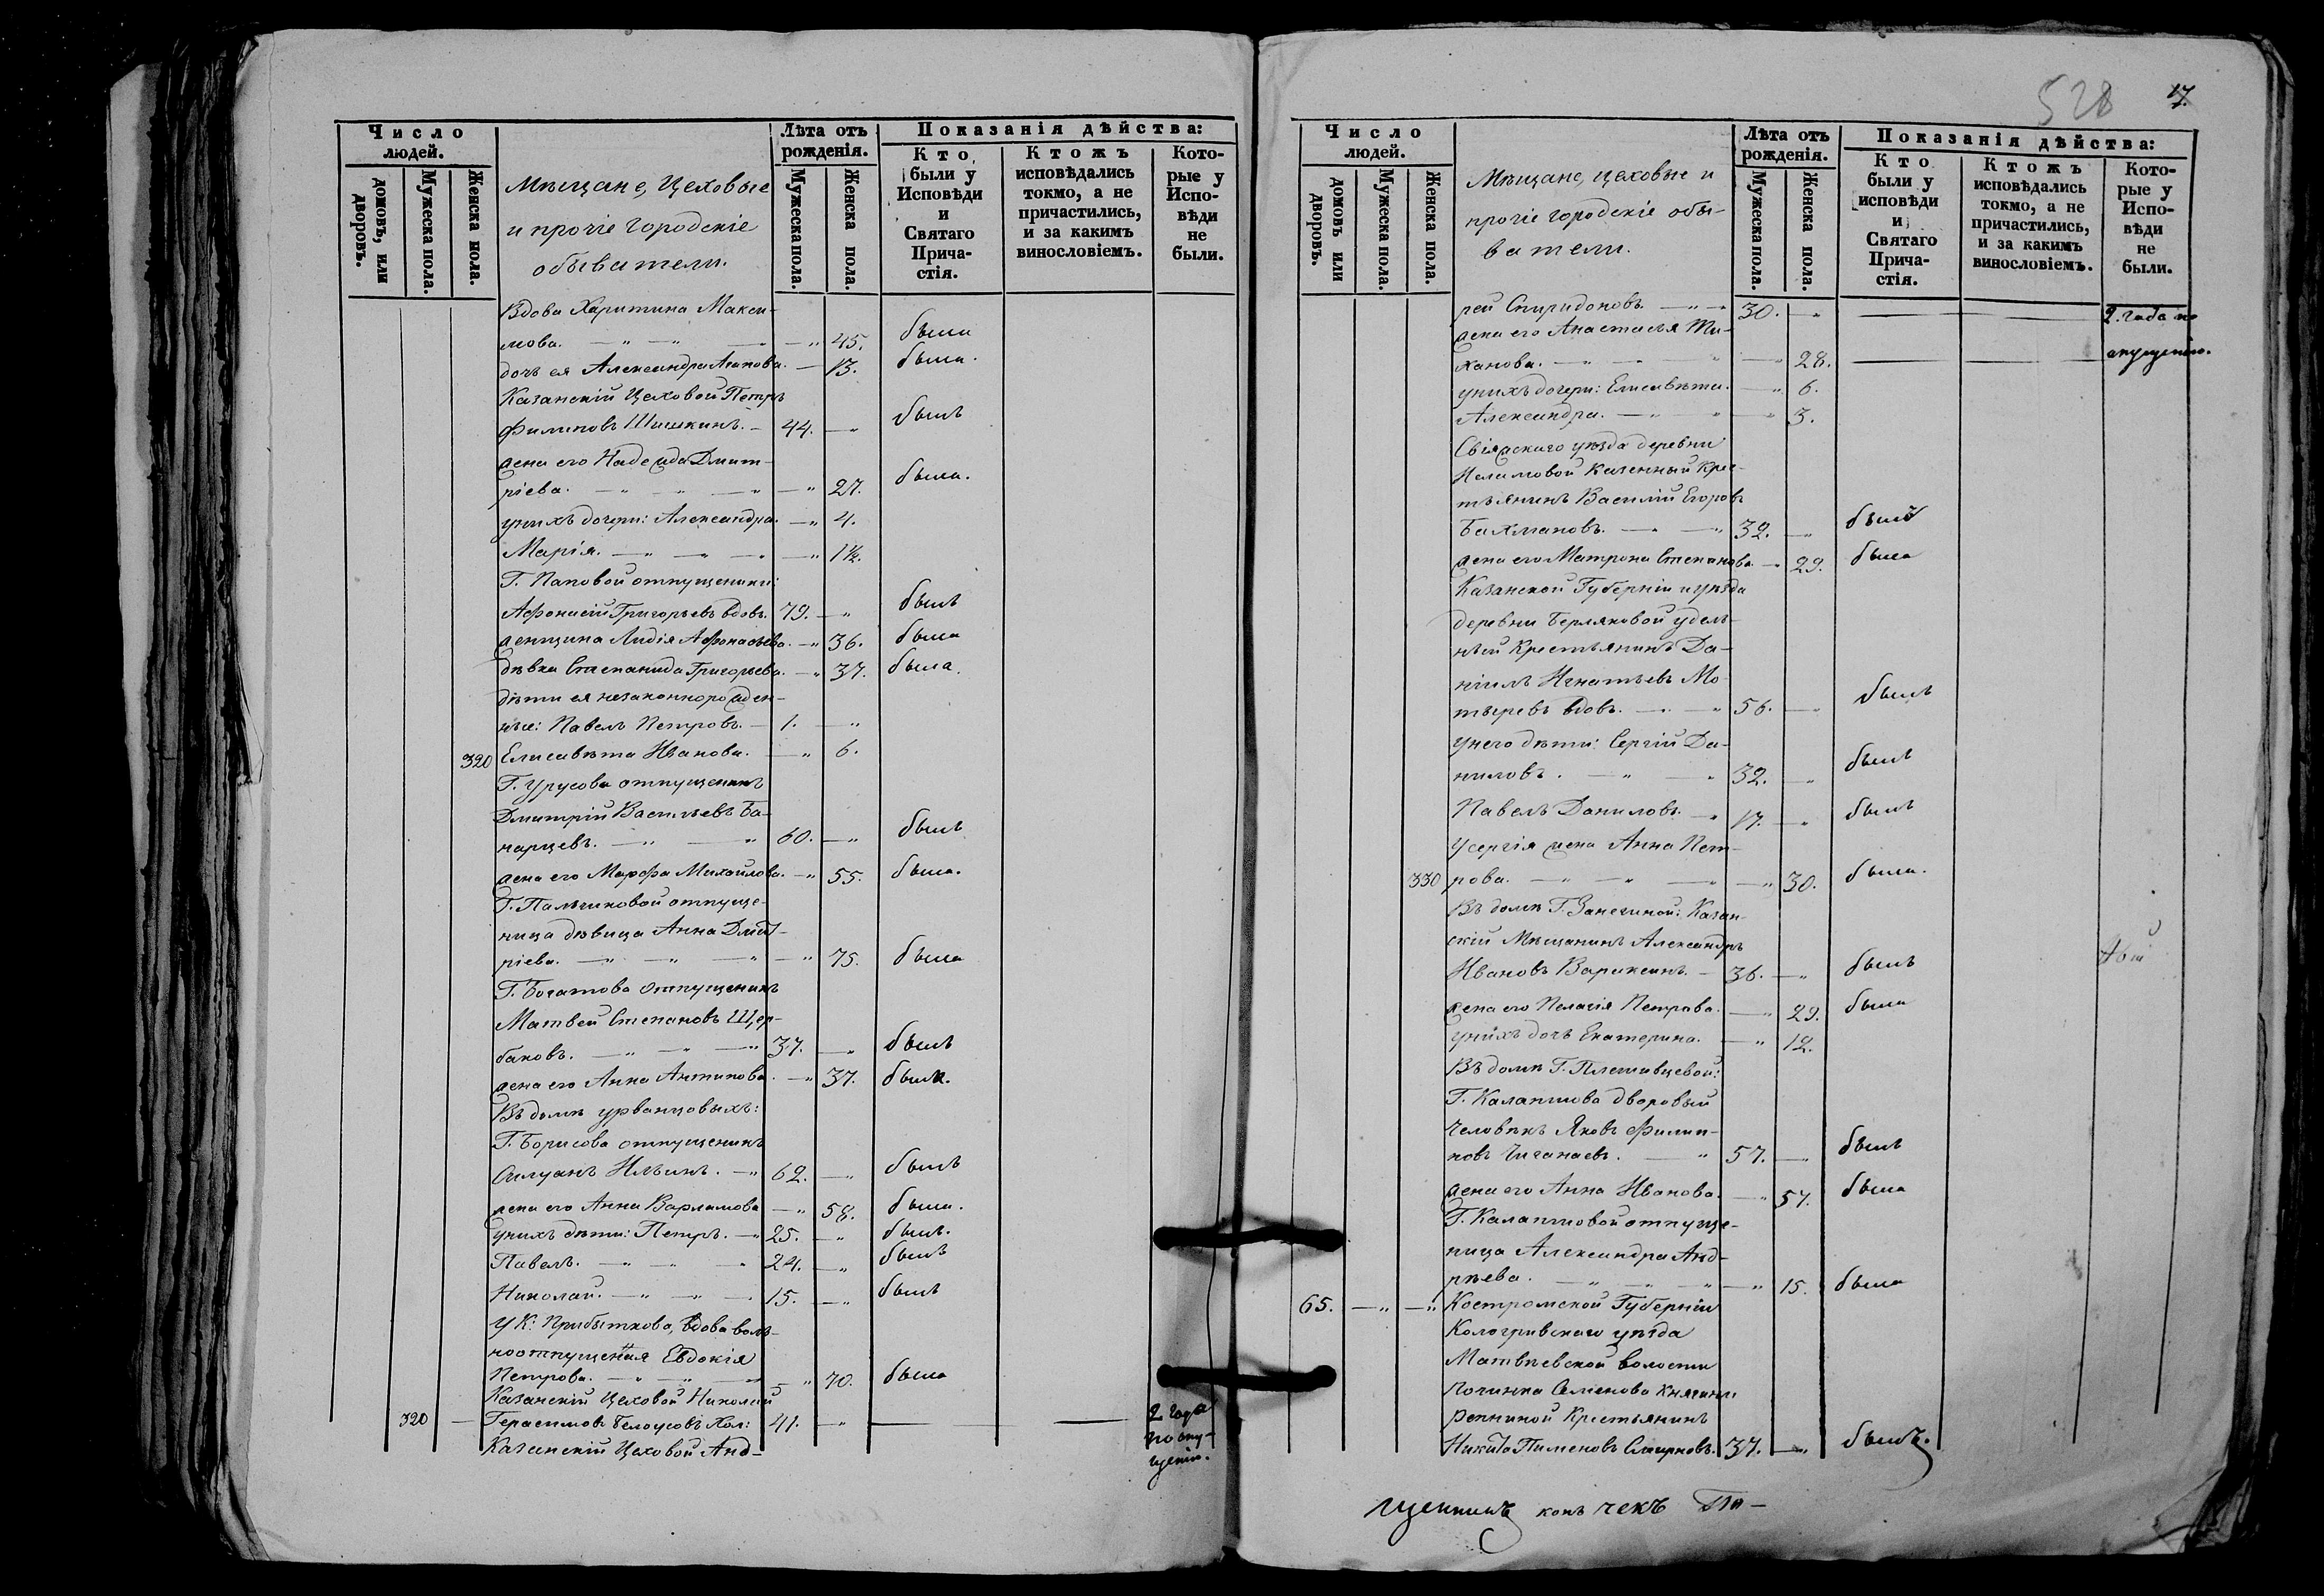 Число людей.
домовъ, или дворовъ.
Мужеска пола.
Женска пола.
Мѣщане, Цеховые
и прочіе городскіе
обыватели.
Лѣта отъ рожденія.
Мужеска пола.
Женска пола.
Показанія дѣйства:
Кто были у Исповѣди и Святаго Прича-стія.
Ктожъ исповѣдались токмо, а не причастились, и за какимъ винословіемъ.
Кото-рые у Испо-вѣди не были.
Вдова Харитина Макси-
мова. — 45. была
дочь ея Александра Агапова. — 13. была.
Казанскій Цеховой Петръ
Филиповъ Шишкинъ. — 44. — былъ
жена его Надежда Дмит-
ріева. — 27. была.
у нихъ дочери: Александра. — 4.
Марія. — 1½.
Г. Паповой отпущеники:
Афонасій Григорьевъ вдовъ. 79. — былъ
женщина Лидія Афонасьева. — 36. была
дѣвка Степанида Григорьева. — 37. была.
дѣти ея незаконнорожден-
ные: Павелъ Петровъ. — 1. —
320 Елисавѣта Иванова. — 6.
Г. Урусова отпущеникъ
Дмитрій Васильевъ Ба-
чарцевъ. — 60. — былъ
жена его Марфа Михайлова. — 55. была.
Г. Пальчиковой отпуще-
ница дѣвица Анна Дмит-
ріева. — 75. была
Г. Богатова отпущеникъ
Матвей Степановъ Щер-
баковъ. — 37. — былъ
жена его Анна Антипова. — 37. была.
Въ домѣ Урванцовыхъ:
Г. Борисова отпущеникъ
Силуанъ Ильинъ. — 62. — былъ
жена его Анна Варламова — 58. была.
у нихъ дѣти: Петръ. — 25. — былъ.
Павелъ. — 24. — былъ
Николай. — 15. — былъ
У К: Прибыткова, вдова воль-
ноотпущенная Евдокія
Петрова. — 70. была
Казанскій Цеховой Николай
320 — Герасимовъ Белоусовъ хол: 41. — 2 года
по опу-
щенію.
Казанскій Цеховой Анд-
528 17.
Число людей.
домовъ или дворовъ.
Мужеска пола.
Женска пола.
Мѣщане, цеховые и
прочіе городскіе обы-
ватели.
Лѣта отъ рожденія.
Мужеска пола.
Женска пола.
Показанія дѣйства:
Кто были у исповѣди и Святаго Прича-стія.
Ктожъ исповѣдались токмо, а не причастились, и за какимъ винословіемъ.
Кото-рые у Испо-вѣди не были.
рей Спиридоновъ. — 30. — 2. года по
жена его Анастасья Ти-
ханова. — 28. — опущенію.
у нихъ дочери: Елисавѣта. — 6.
Александра. — 3.
Свіяжскаго уѣзда деревни
Казенный Крес-
тьянинъ Василій Егоровъ
Бахмановъ. — 32. — былъ
жена его Матрона Степанова. — 29. была
Казанской Губерніи и уѣзда
деревни Берляковой удель-
ный Крестьянинъ Да-
ніилъ Игнатьевъ Мо-
тыревъ вдовъ. — 56. — былъ
у него дѣти: Сергій Да-
ниловъ. — 32. — былъ
Павелъ Даниловъ. — 17. — былъ
У Сергія жена Анна Пет-
330 рова. — 30. была.
Въ домѣ Г. Занегиной: Казан-
скій Мѣщанинъ Александръ
Ивановъ Вараксинъ. — 36. — былъ
жена его Пелагія Петрова. — 29. была
у нихъ дочь Екатерина. — 12.
Въ домѣ Г. Племивцевой:
Г. Калапшова дворовый
человѣкъ Яковъ Филип-
повъ Чиганаевъ. — 57. — былъ
жена его Анна Иванова. — 57. была
Г. Калапшовой отпуще-
ница Александра Анд-
рѣева. — 15. была
65. — — Костромской Губерніи
Кологривскаго уѣзда
Матвѣевской волости
починка Семенова Княгини
Репниной Крестьянинъ
Никита Пименовъ Смирновъ. 37. — былъ.